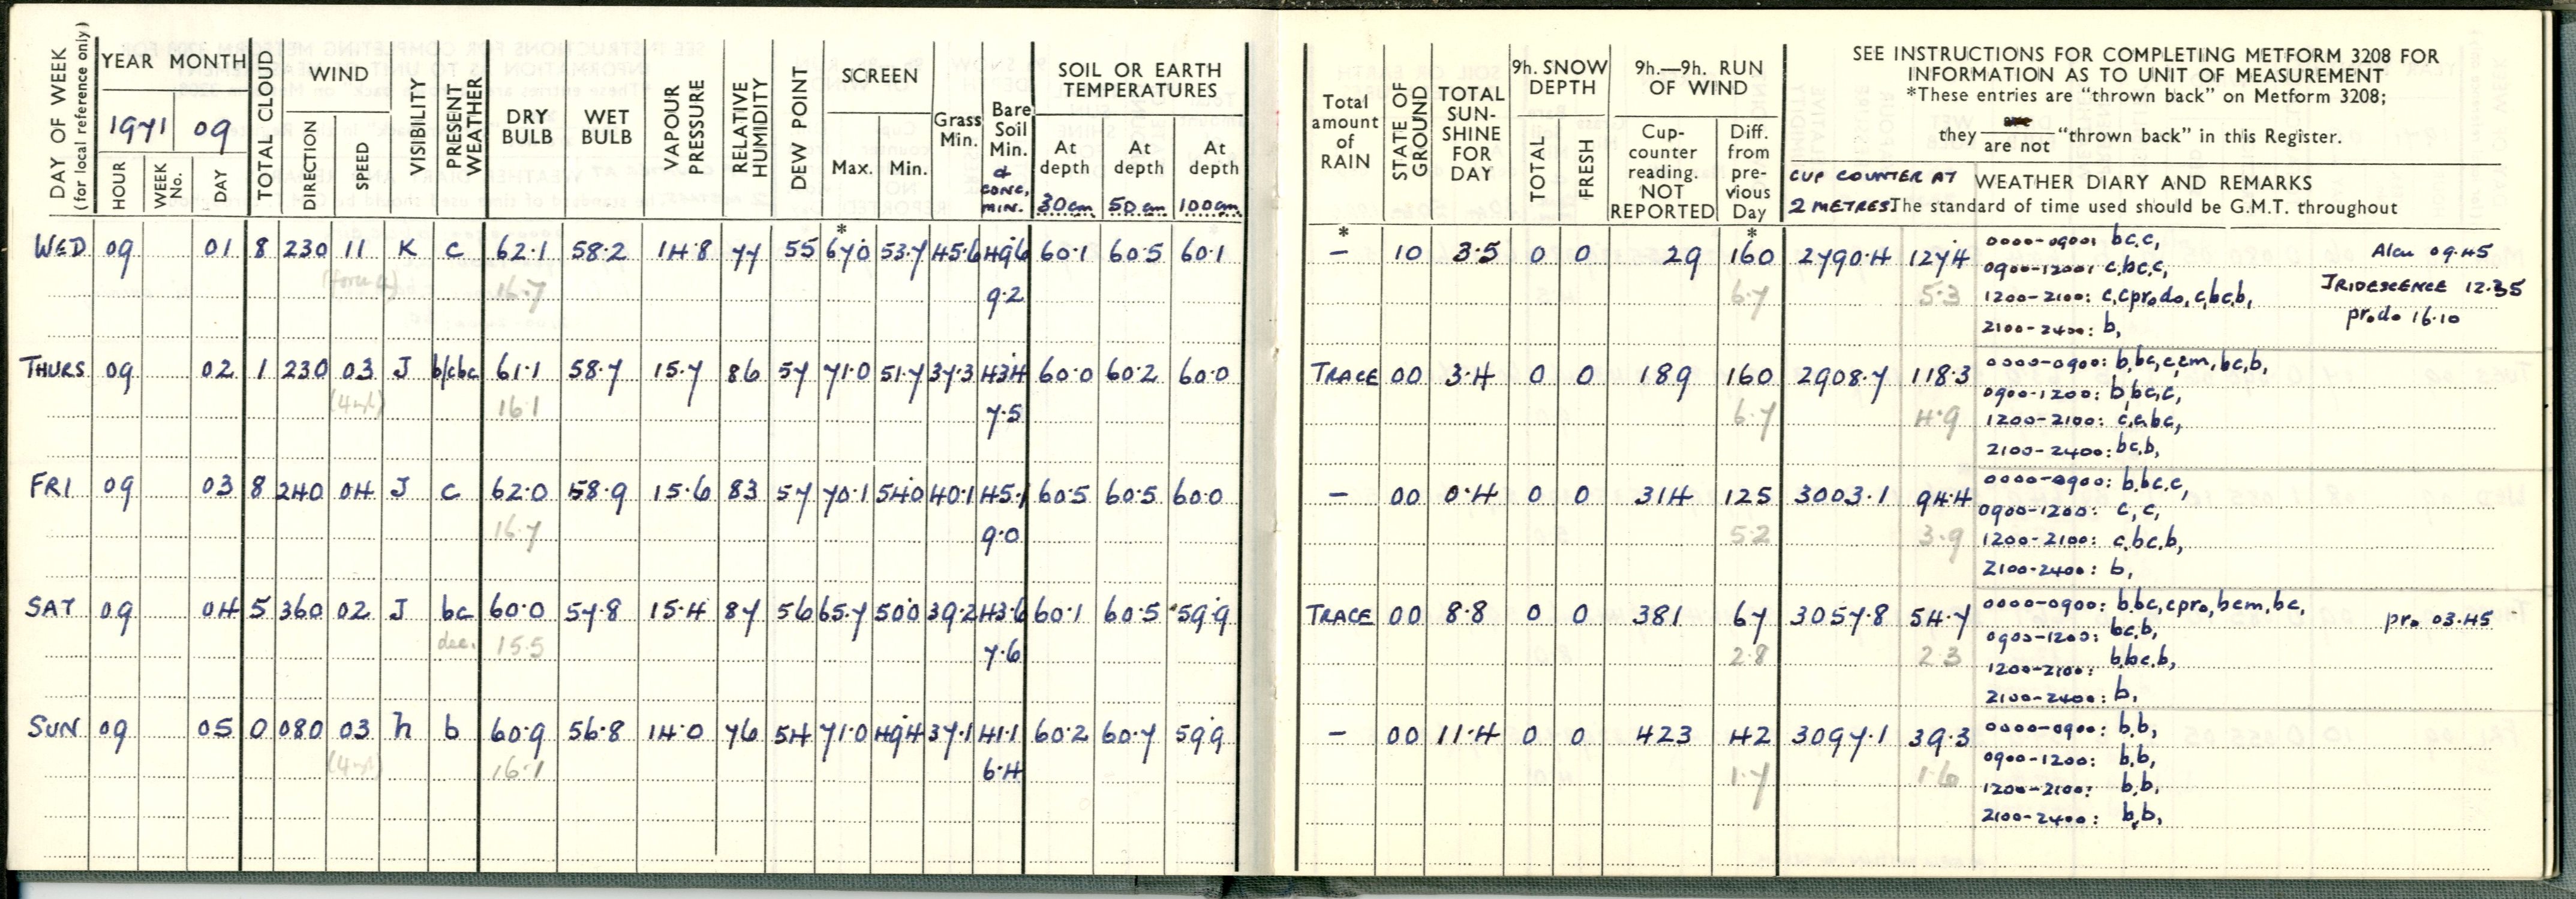 DAY OF WEEK
(for local reference only)
YEAR MONTH
1971 09
HOUR
WEEK No.
DAY
TOTAL CLOUD
WIND
DIRECTION
SPEED
VISIBILITY
PRESENT WEATHER
DRY BULB
WET BULB
VAPOUR PRESSURE
RELATIVE HUMIDITY
DEW POINT
SCREEN
Max. Min.
Grass Min.
Bare Soil Min.
& CONC. MIN.
SOIL OR EARTH TEMPERATURES
At depth 30cm
At depth 50cm
At depth 100cm
Total amount of RAIN
STATE OF GROUND
TOTAL SUN-SHINE FOR DAY
9h. SNOW DEPTH
TOTAL
FRESH
9h.—9h. RUN OF WIND
Cup-counter reading. NOT REPORTED
Diff. from pre-vious Day
SEE INSTRUCTIONS FOR COMPLETING METFORM 3208 FOR
INFORMATION AS TO UNIT OF MEASUREMENT
*These entries are "thrown back" on Metform 3208;
they are not "thrown back" in this Register.
CUP COUNTER AT
2 METRES
WEATHER DIARY AND REMARKS
The standard of time used should be G.M.T. throughout
WED 09 01 8 230 11 K c 62.1 58.2 14.8 77 55 *67.0 53.7 45.6 49.6 60.1 60.5 60.1 *– 10 3.5 0 0 29 *160 2790.4 127.4
(force 4) 16.7 9.2 6.7 5.3
0000-0900: bc,c,
0900-1200: c,bc,c,
1200-2100: c,cpr₀d₀,c,bc,b,
2100-2400: b,
Alcu 09.45
IRIDESCENCE 12.35
pr₀d₀ 16.10
THURS 09 02 1 230 03 J b/cbc 61.1 58.7 15.7 86 57 71.0 51.7 37.3 43.4 60.0 60.2 60.0 TRACE 00 3.4 0 0 189 160 2908.7 118.3
16.1 7.5 6.7 4.9
0000-0900: b,bc,c,cm,bc,b,
0900-1200: b,bc,c,
1200-2100: c,c,bc,
2100-2400: bc,b,
FRI 09 03 8 240 04 J c 62.0 58.9 15.6 83 57 70.1 54.0 40.1 45.1 60.5 60.5 60.0 – 00 0.4 0 0 314 125 3003.1 94.4
16.7 9.0 5.2 3.9
0000-0900: b,bc,c,
0900-1200: c,c,
1200-2100: c,bc,b,
2100-2400: b,
SAT 09 04 5 360 02 J bc 60.0 57.8 15.4 87 56 65.7 50.0 39.2 43.6 60.1 60.5 59.9 TRACE 00 8.8 0 0 381 67 3057.8 54.7
dec. 15.5 7.6 2.8 2.3
0000-0900: b,bc,cpr₀,bcm,bc,
0900-1200: bc,b,
1200-2100: b,bc,b,
2100-2400: b,
pr₀ 03.45
SUN 09 05 0 080 03 h b 60.9 56.8 14.0 76 54 71.0 49.4 37.1 41.1 60.2 60.7 59.9 – 00 11.4 0 0 423 42 3097.1 39.3
16.1 6.4 1.7 1.6
0000-0900: b,b,
0900-1200: b,b,
1200-2100: b,b,
2100-2400: b,b,